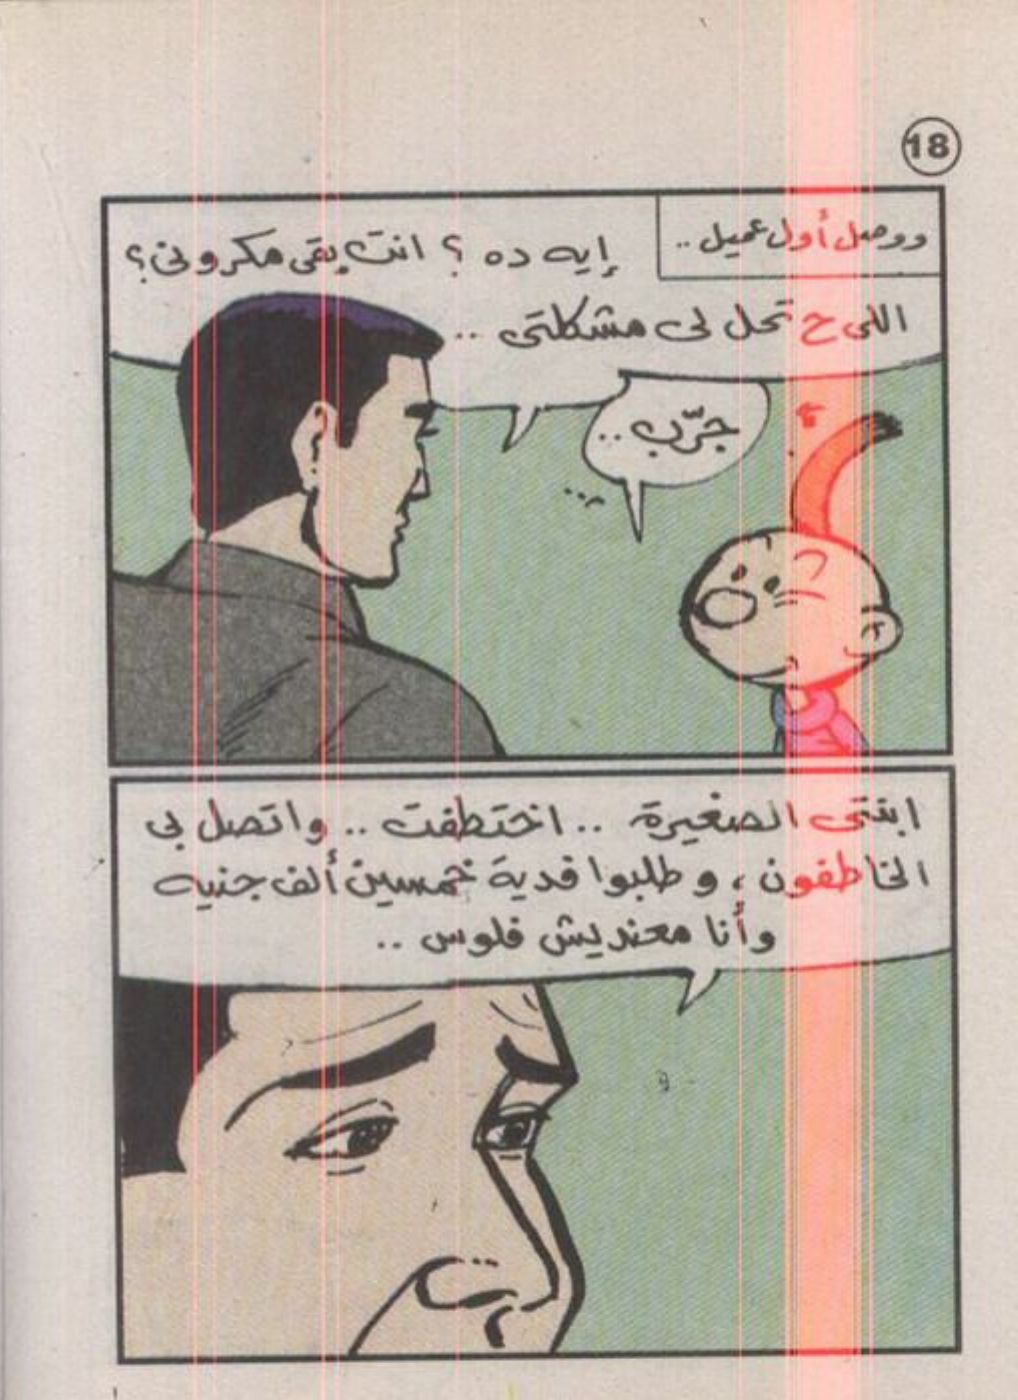 18
ووصل أول عميل ..
إيه ده ؟ انت بقى مكرونى ؟
اللى ح تحل لى مشكلتى ..
جرّب ..
ابنتى الصغيرة .. اختطفت .. واتصل بى
الخاطفون ، وطلبوا فدية خمسين ألف جنيه
وأنا معنديش فلوس ..